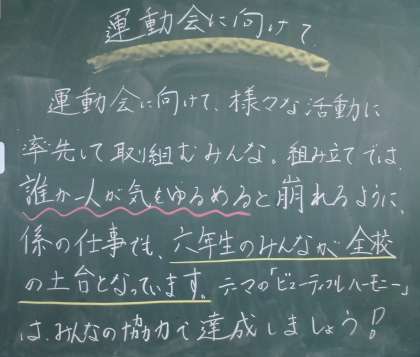 運動会に向けて
運動会に向けて、様々な活動に
率先して取り組むみんな。組み立てでは、
誰か一人が気をゆるめると崩れるように、
係の仕事でも、六年生のみんなが、全校
の土台となっています。テーマの「ビューティフルハーモニー」
は、みんなの協力で達成しましょう!!